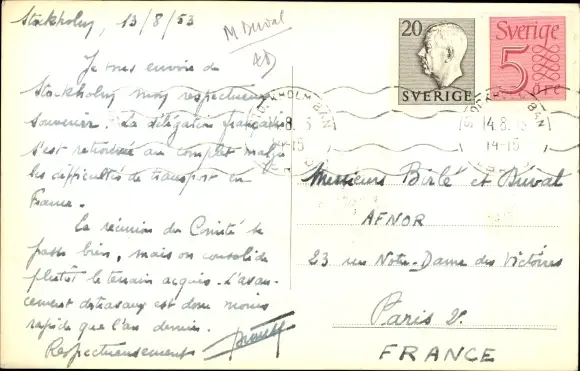 Stockholm, 13/8/53
M Duval
Je vous envoie de
Stockholm mon respectueux
souvenir. La délégation française
s'est retrouvée au complet malgré
les difficultés de transport en
France.
La réunion du Comité se
passe bien, mais on consolide
plutôt le terrain acquis. L'avan-
cement des travaux est donc moins
rapide que l'an dernier.
Respectueusement
20
SVERIGE
Sverige
5
öre
14.8.53
14-15
Messieurs Birlé et Duval
AFNOR
23 rue Notre-Dame des Victoires
Paris 2.
FRANCE